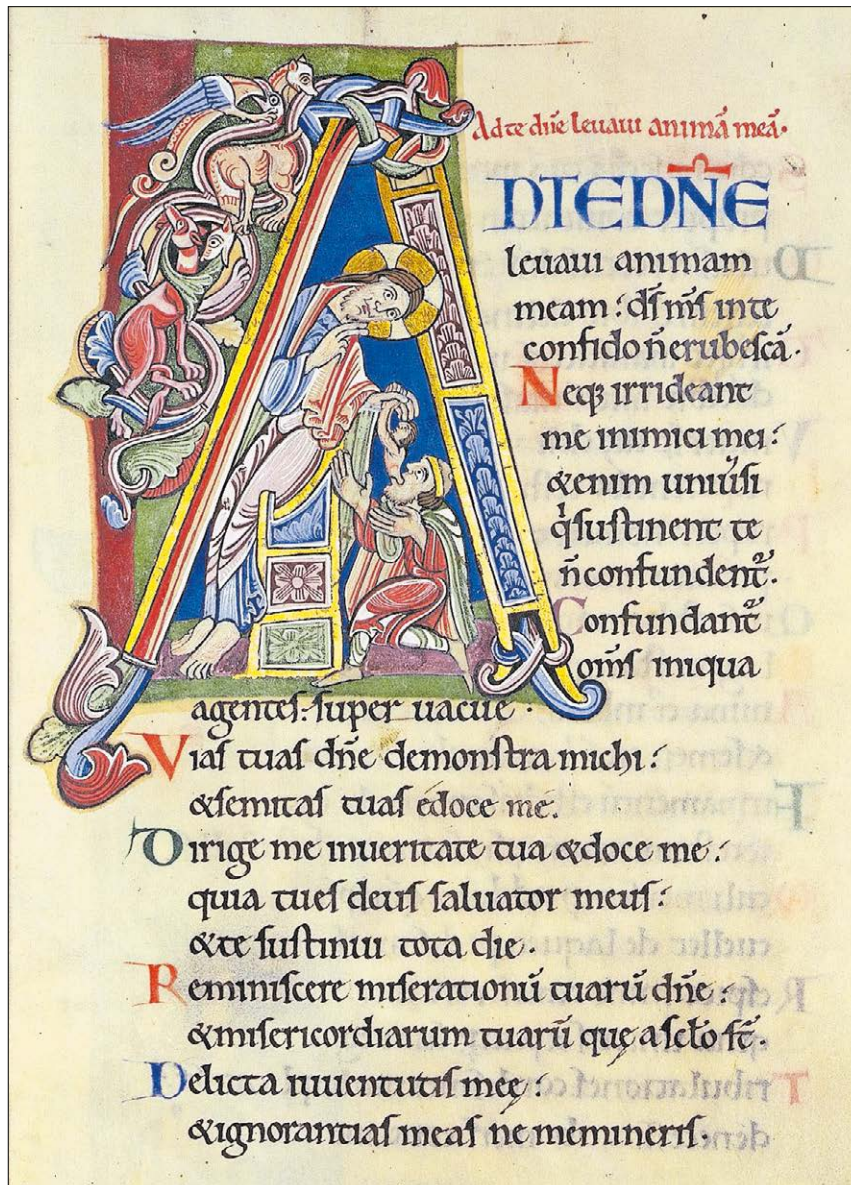 Ad te dñe leuaui animā meā.
AD TE DÑE
leuaui animam
meam: dſ mſ in te
confido ñ erubeſcā.
Neqꝫ irrideant
me inimici mei:
&enim uniuſi
q̇ ſuſtinent te
ñ confundent᷑.
Confundant᷑
om̄ſ iniqua
agenteſ: ſuper uacue.
Viaſ tuaſ dñe demonſtra michi:
&ſemitaſ tuaſ edoce me.
Dirige me in ueritate tua &doce me:
quia tu eſ deuſ ſaluator meuſ:
&te ſuſtinui tota die.
Reminiſcere miſerationū tuarū dñe:
&miſericordiarum tuarū quę a ſc̄lo ſt̄.
Delicta iuuentutiſ meę:
&ignorantiaſ meaſ ne memineriſ.